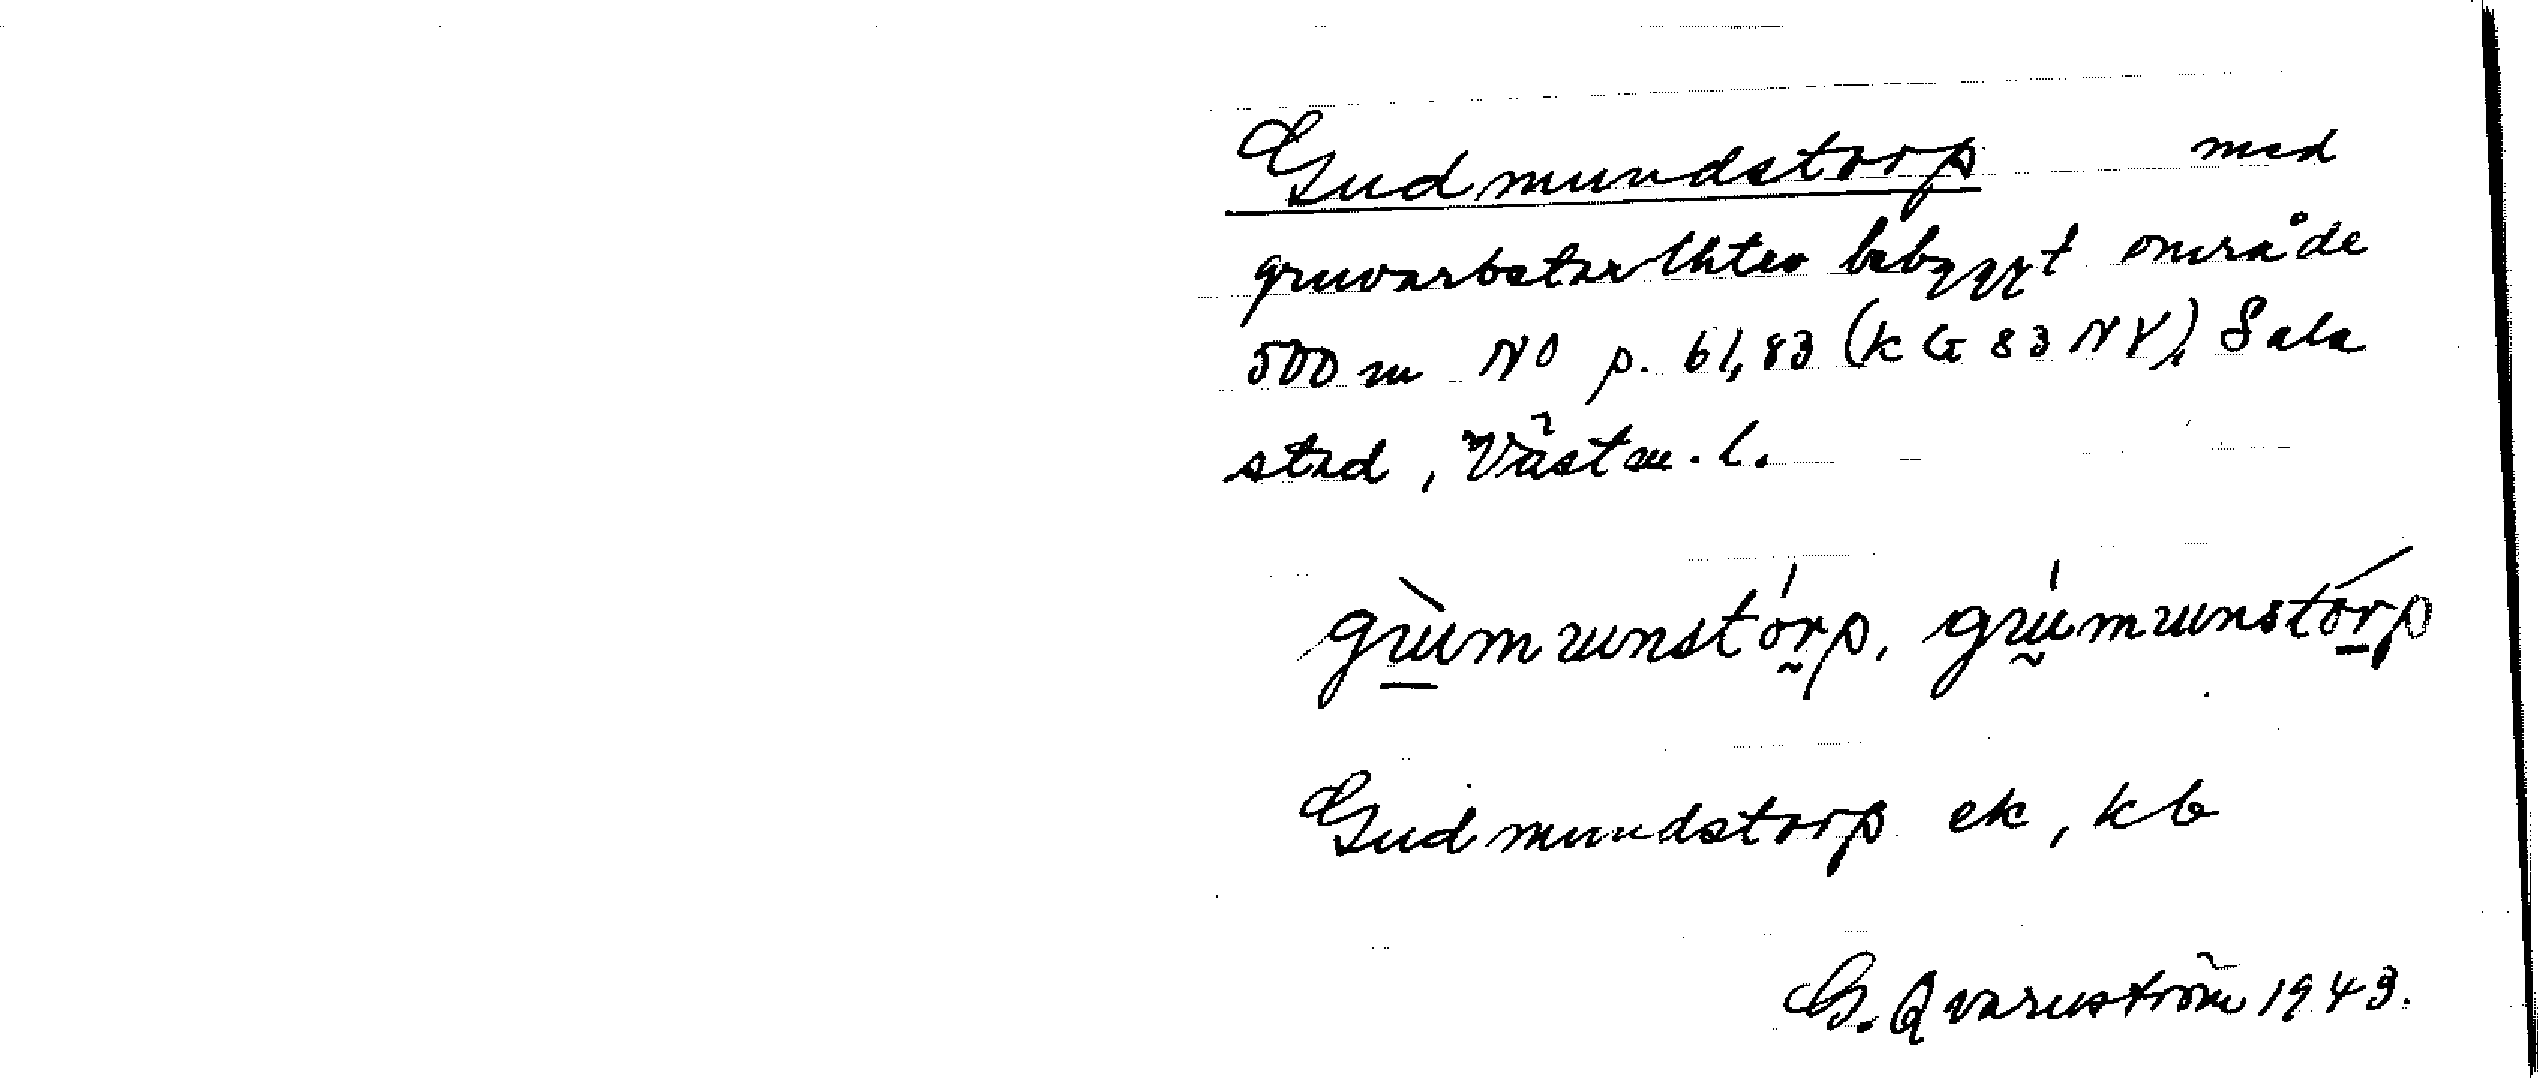 Gudmundstorp med
gruvarbetarlhter bebyggt område
500 m NO p. 61,83 (kG 83 NV), Sala
stad, Västm. l.
gùmunstórp, gúmunstórp
Gudmundstorp ek, kb
G. Qvarnström 1943.